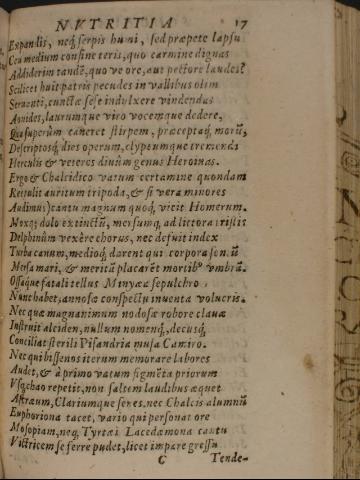 NVTRITIA 17
Expandis, neq; serpis humi, sed præpete lapsu
Ceu medium confine teris, quo carmine dignas
Addiderim tandẽ, quo ve ore, aut pectore laudes?
Scilicet huit patris pecudes in vallibus olim
Seruanti, cunctæ sese indulxere videndas
Aonides, laurumque viro vocemque dedere,
Qua superûm caneret stirpem, præceptaq; morũ,
Descriptosq́; dies operum, clypeumque tremendi
Herculis & veteres diuûm genus Heroinas.
Ergo & Chalcidico vatum certamine quondam
Rettulit auritum tripoda, & si vera minores
Audimus) tantu magnum quoq́; vicit Homerum.
Moxq; dolo extinctũ, mersumq́; ad littora tristis
Delphinûm vexêre chorus, nec defuit index
Turba canum, medioq́; darent qui corpora
Mersa mari, & meritâ placarẽt mortib⁹ vmbrã.
Ossaque fatali tellus Minyæa sepulchro
Nunc habet, annosæ conspectu inuenta volucris.
Nec quæ magnanimum nodosæ robore clauæ
Instruit alciden, nullum nomenq́;, decusq́;
Conciliat sterili Pisandria musa Camiro.
Nec qui bissenos iterum memorare labores
Audet, & à primo vatum figmẽta priorum
Vsq; chao repetit, non saltem laudibus æquet
Astræum, Clariumque senes. nec Chalcis alumnũ
Euphoriona tacet, vario qui personat ore
Mosopiam, neq; Tyrtæi Lacedæmona cantu
Victricem se ferre pudet, licet impare gressu
C Tende-